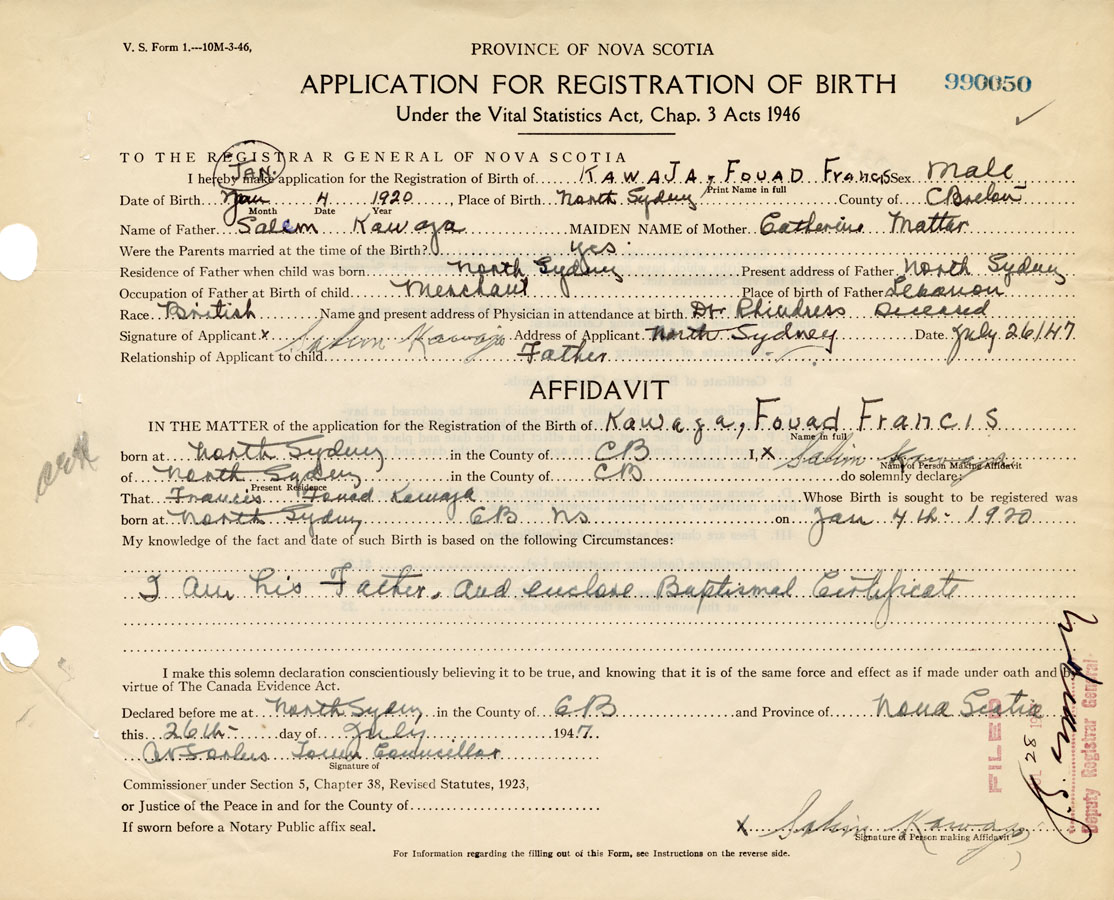 V. S. Form 1.---10M-3-46,
PROVINCE OF NOVA SCOTIA
APPLICATION FOR REGISTRATION OF BIRTH
990050
Under the Vital Statistics Act, Chap. 3 Acts 1946
TO THE REGISTRAR GENERAL OF NOVA SCOTIA
JAN.
I hereby make application for the Registration of Birth of KAWAJA, FOUAD Francis Sex Male
Print Name in full
Date of Birth Jan 4 1920, Place of Birth North Sydney County of C Breton
Month Date Year
Name of Father Salem Kawaja MAIDEN NAME of Mother Catherine Mattar
Were the Parents married at the time of the Birth? yes
Residence of Father when child was born North Sydney Present address of Father North Sydney
Occupation of Father at Birth of child Merchant Place of birth of Father Lebanon
Race British Name and present address of Physician in attendance at birth Dr Rhindress Deceased
Signature of Applicant x Salim Kawaja Address of Applicant North Sydney Date July 26/47
Relationship of Applicant to child Father
AFFIDAVIT
IN THE MATTER of the application for the Registration of the Birth of Kawaja, Fouad Francis
Name in full
born at North Sydney in the County of CB I, X Salim Kawaja
Name of Person Making Affidavit
of North Sydney in the County of CB do solemnly declare:
Present Residence
That Francis Fouad Kawaja Whose Birth is sought to be registered was
born at North Sydney CB NS on Jan 4th 1920
My knowledge of the fact and date of such Birth is based on the following Circumstances:
I am his Father. and enclose Baptismal Certificate
I make this solemn declaration conscientiously believing it to be true, and knowing that it is of the same force and effect as if made under oath and by
virtue of The Canada Evidence Act.
Declared before me at North Sydney in the County of CB and Province of Nova Scotia
this 26th day of July 1947.
Town Councillor
Signature of
Commissioner under Section 5, Chapter 38, Revised Statutes, 1923,
or Justice of the Peace in and for the County of
If sworn before a Notary Public affix seal.
X Salim Kawaja
Signature of Person making Affidavit
For Information regarding the filling out of this Form, see Instructions on the reverse side.
FILED
28
Deputy Registrar General